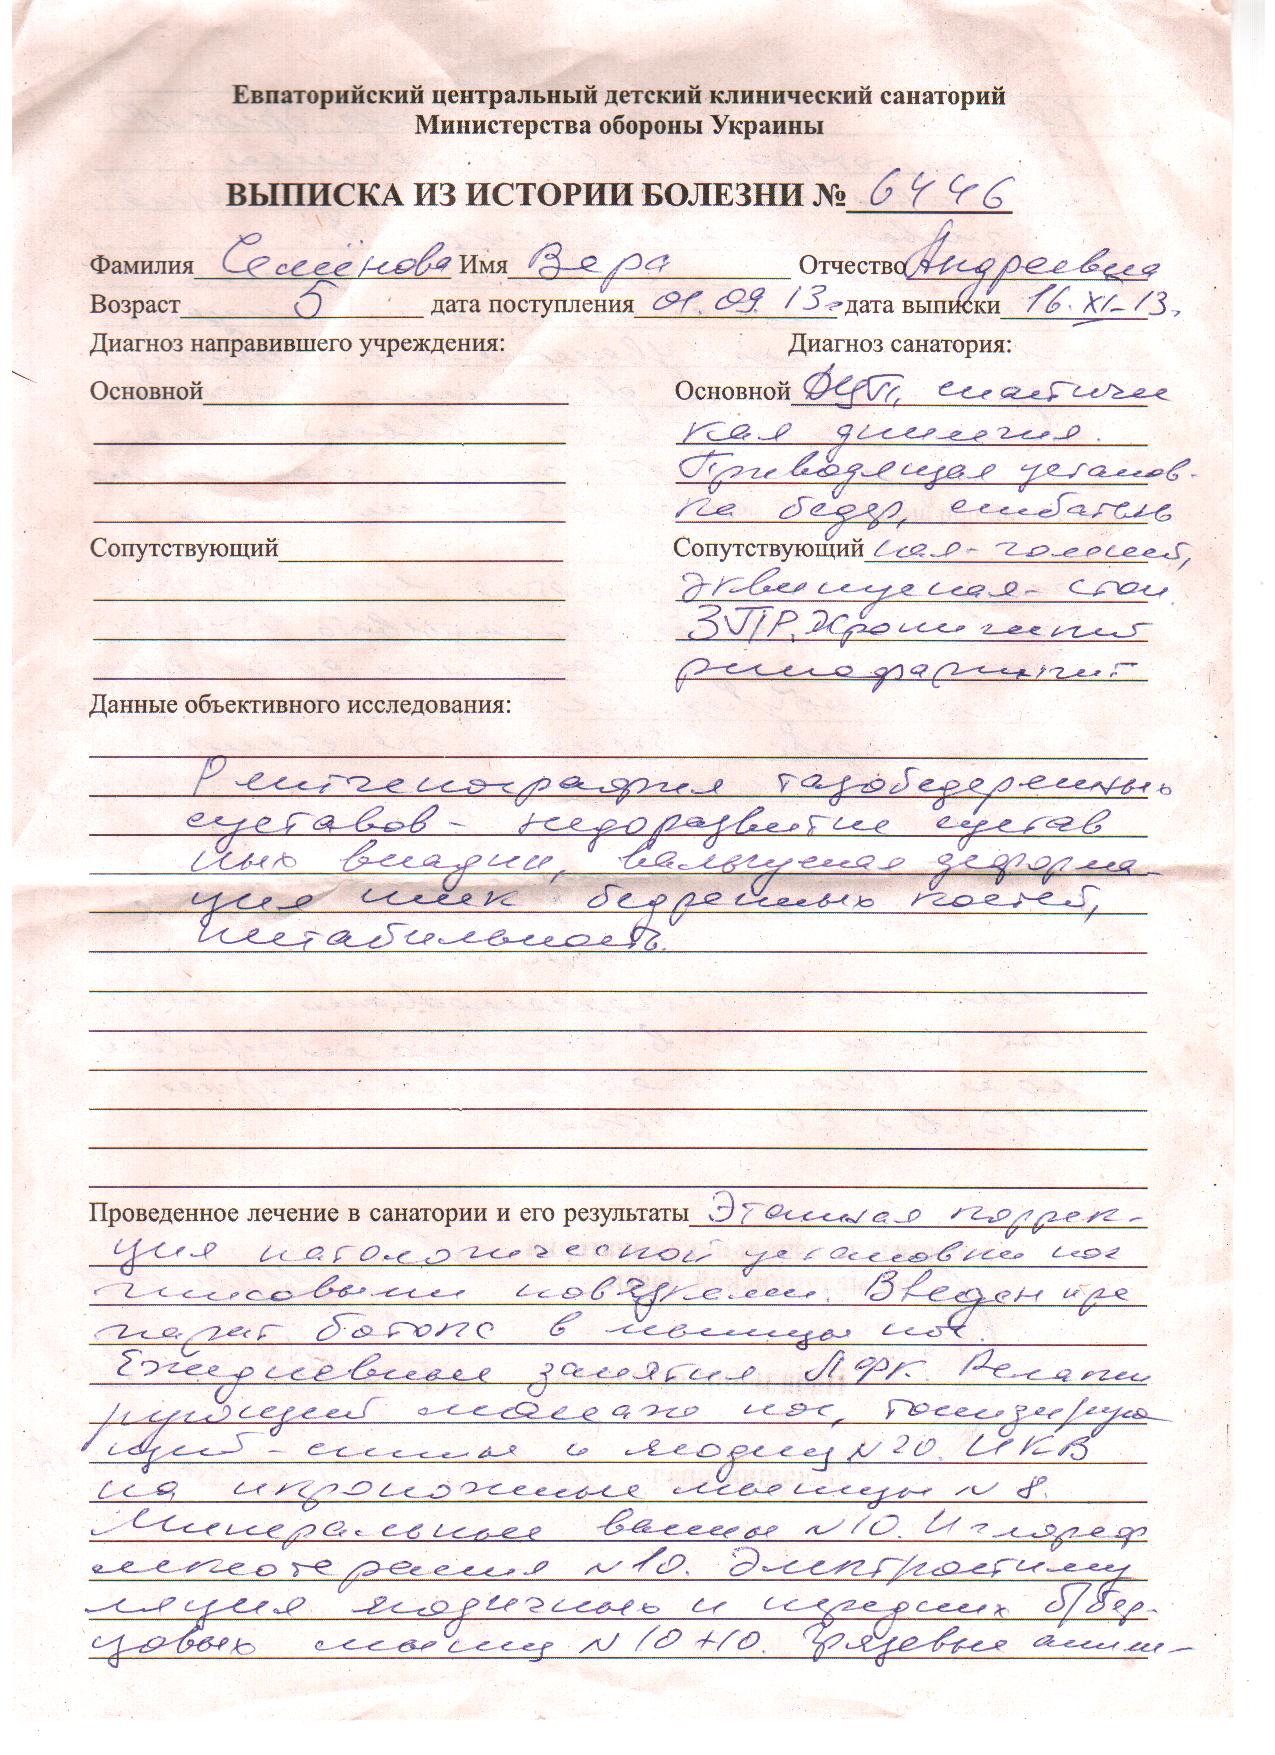 Евпаторийский центральный детский клинический санаторий
Министерства обороны Украины
ВЫПИСКА ИЗ ИСТОРИИ БОЛЕЗНИ № 6446
Фамилия Семёнова Имя Вера Отчество Андреевна
Возраст 5 дата поступления 01.09.13г дата выписки 16.XI-13г.
Диагноз направившего учреждения: Диагноз санатория:
Основной Основной ДЦП, спастичес
кая диплегия.
Приводящая установ-
ка бедер, сгибатель
Сопутствующий Сопутствующий ная - голеней,
эквинусная - стоп.
ЗПР. Хронический
ринофарингит
Данные объективного исследования:
Рентгенография тазобедренных
суставов - недоразвитие сустав
ных впадин, вальгусная деформа-
ция шеек бедренных костей,
нестабильность.
Проведенное лечение в санатории и его результаты Этапная коррек-
ция патологической установки ног
гипсовыми повязками. Введен пре
парат ботокс в мышцы ног.
Ежедневные занятия ЛФК. Релакси
рующий массаж ног, тонизирую
щий - спины и ягодиц N20. ИКВ
на икроножные мышцы N 8.
Минеральные ванны N10. Иглореф
лексотерапия N10. Электростиму
ляция ягодичных и передних б/бер-
цовых мышц N10+10. Грязевые аппли-